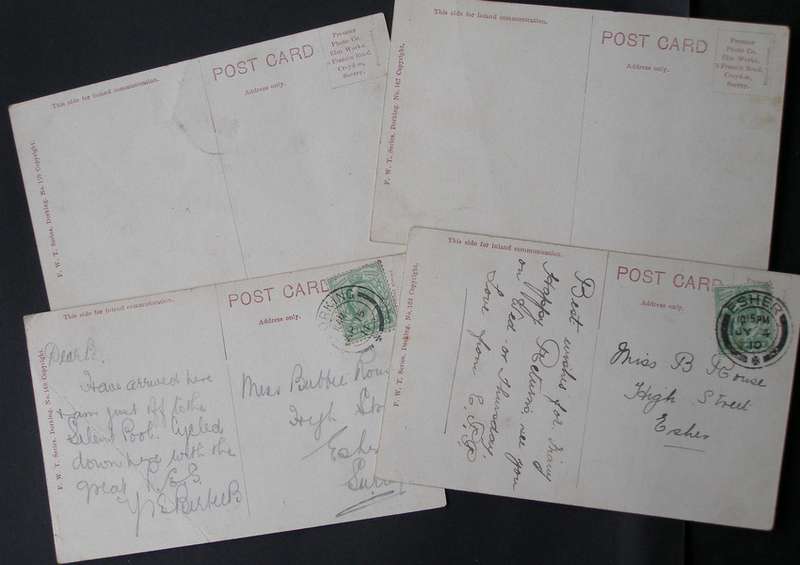 This side for inland communication.
POST CARD
Address only.
Premier
Photo Co.
Elm Works,
Francis Road,
Croydon,
Surrey.
F. W. T. Series, Dorking. No. Copyright.
This side for inland communication.
POST CARD
Address only.
Premier
Photo Co.
Elm Works,
Francis Road,
Croydon,
Surrey.
F. W. T. Series, Dorking. No. 147 Copyright.
This side for inland communication.
POST CARD
Address only.
DORKING
F. W. T. Series, Dorking. No. Copyright.
Dear B.
Have arrived here
& am just off to the
Silent Pool. Cycled
down here with the
great
Miss Bubbie
High
Esher
This side for inland communication.
POST CARD
Address only.
ESHER
10.15PM
10
F. W. T. Series, Dorking. No. Copyright.
Best wishes for many
happy Returns, see you
on Wed- or Thursday.
Love from
Miss B Rouse
High Street
Esher